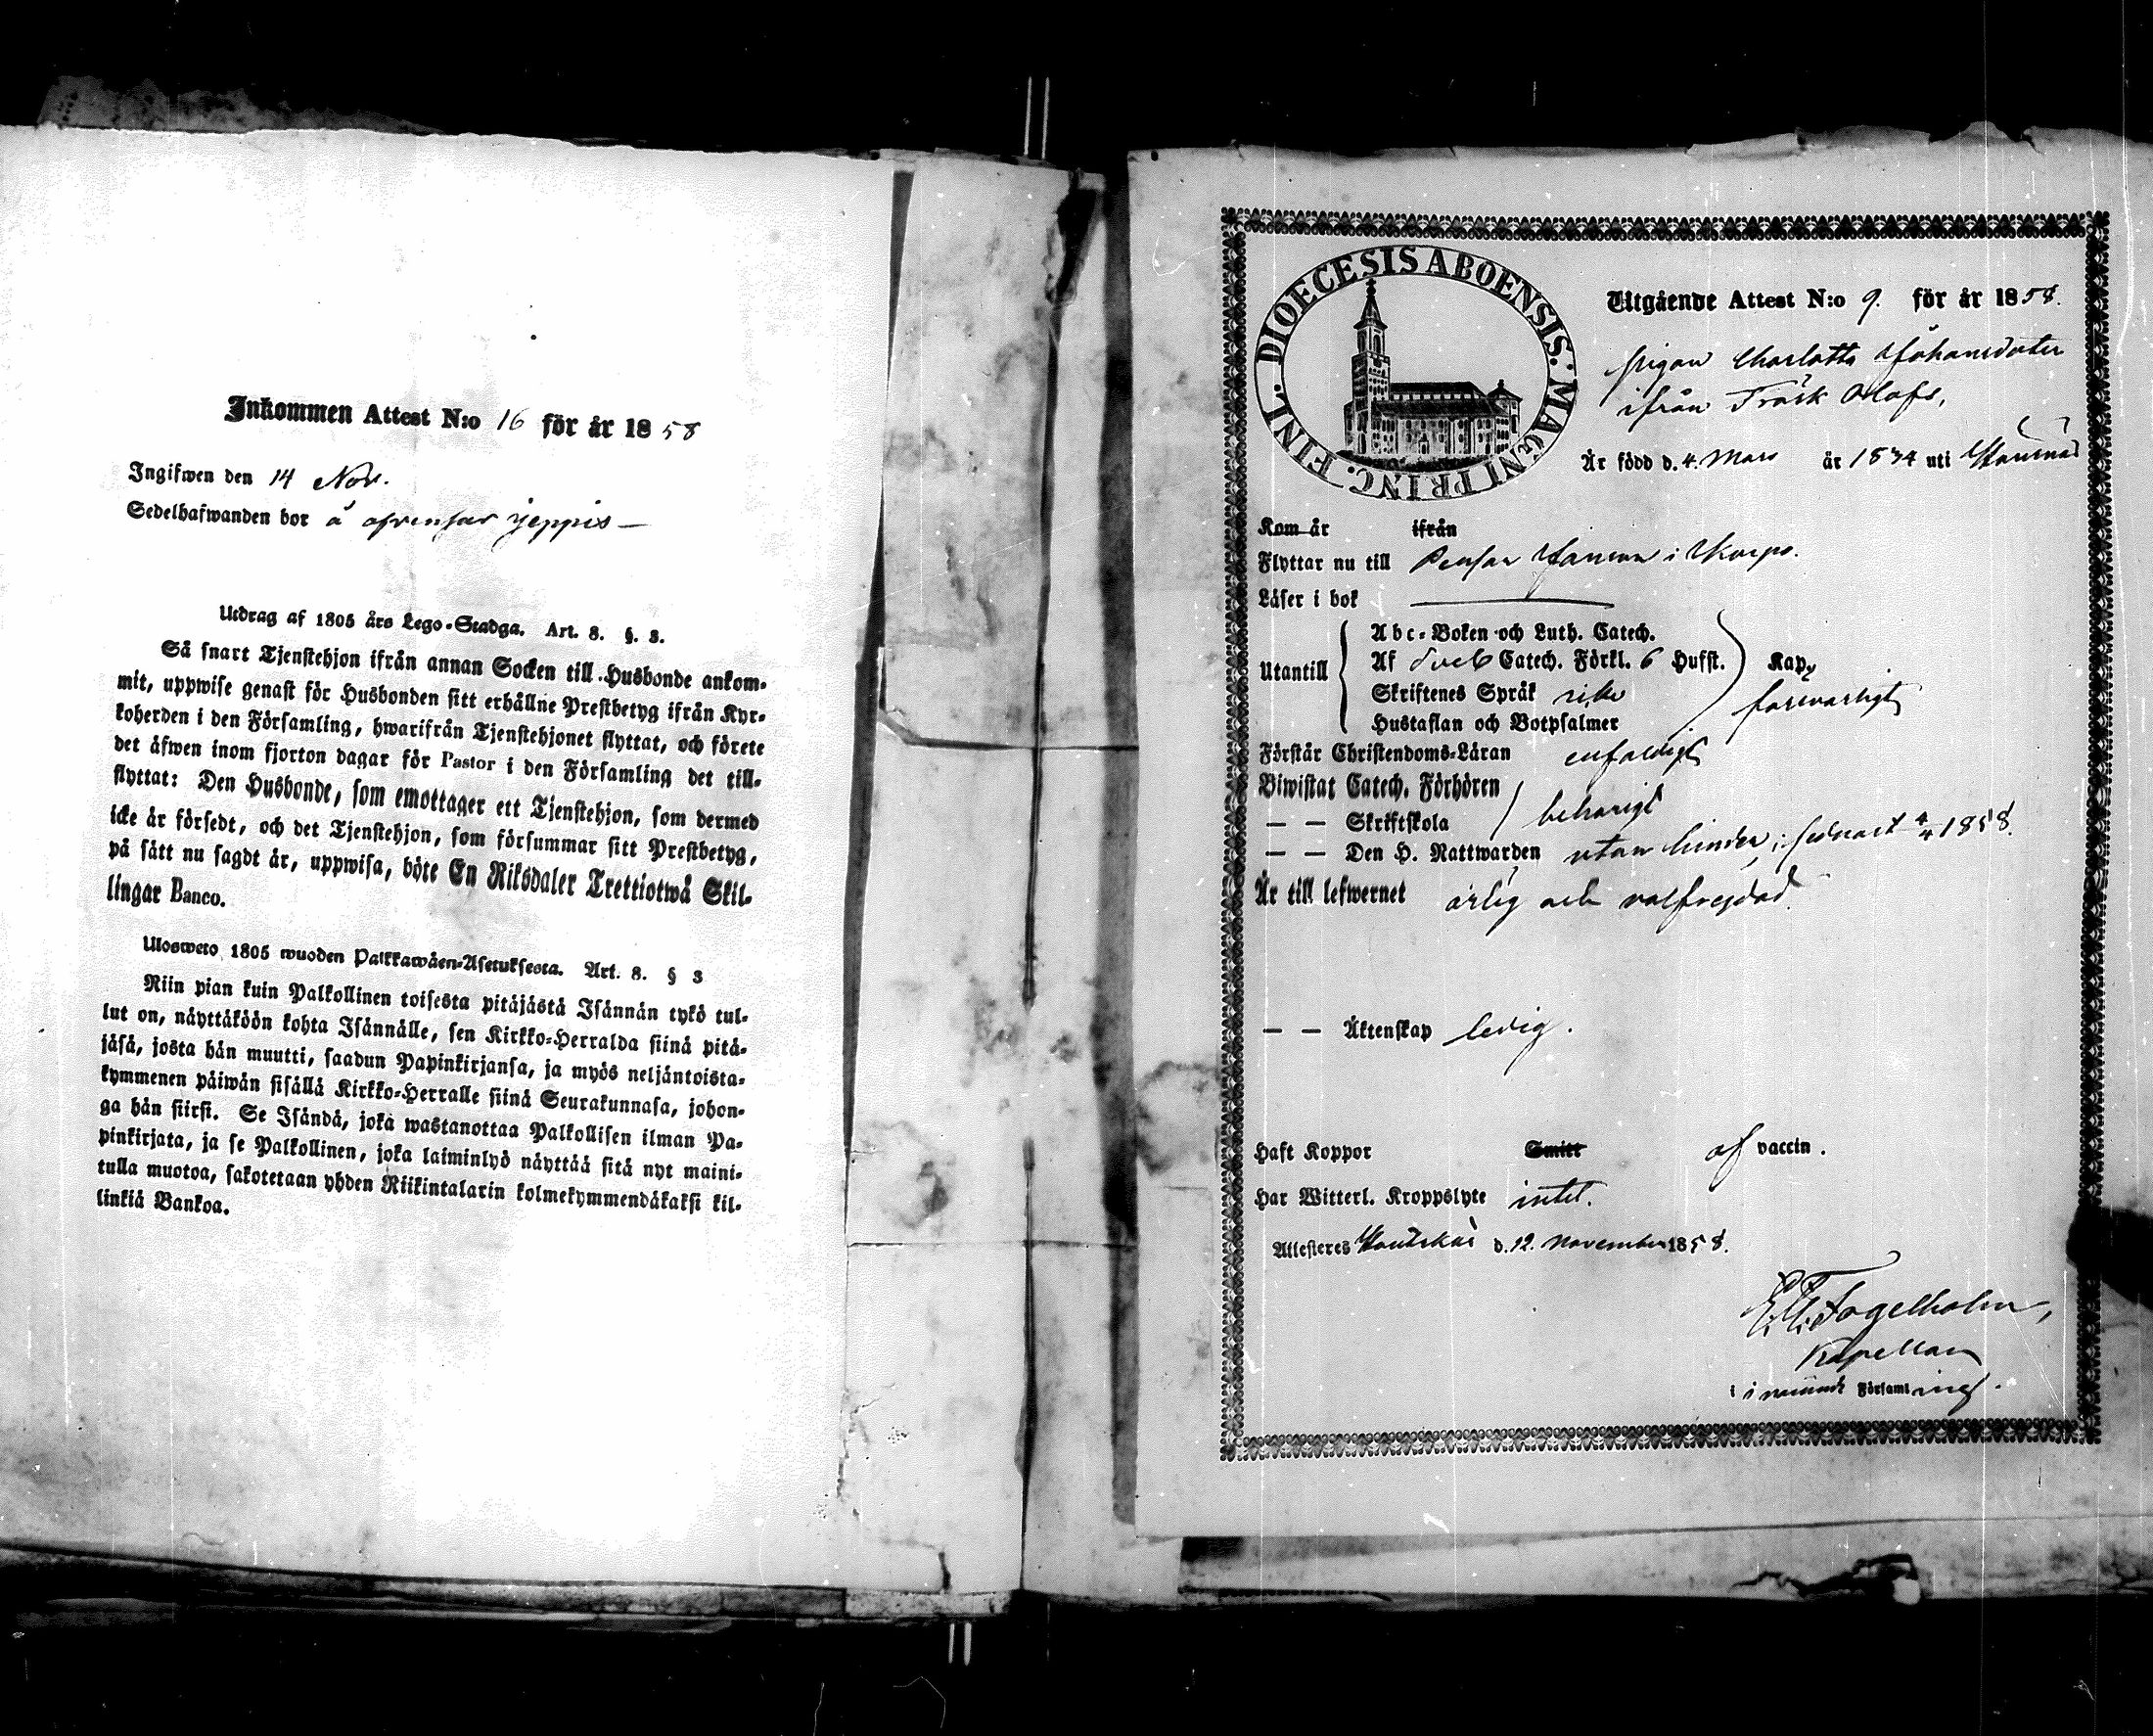 Inkommen Attest N:o 16 för år 1858
Ingifwen den 14 Nov.
Sedelhafwanden bor å ofvensor Jeppis —
Utdrag af 1805 års Lego-Stadga. Art. 8. §. 3.
Så snart Tjenstehjon ifrån annan Socken till Husbonde ankom-
mit, uppwise genast för Husbonden sitt erhållne Prestbetyg ifrån Kyr-
koherden i den Församling, hwarifrån Tjenstehjonet flyttat, och förete
det äfwen inom fjorton dagar för Pastor i den Församling det till-
flyttat: Den Husbonde, som emottager ett Tjenstehjon, som dermed
icke är försedt, och det Tjenstehjon, som försummar sitt Prestbetyg,
på sätt nu sagdt är, uppwisa, böte En Riksdaler Trettiotwå Skil-
lingar Banco.
Ulosweto 1805 wuoden Palkkawäen-Asetuksesta. Art. 8. § 3
Niin pian kuin Palkollinen toisesta pitäjästä Isännän tykö tul-
lut on, näyttäköön kohta Isännälle, sen Kirkko-Herralda siinä pitä-
jäsä, josta hän muutti, saadun Papinkirjansa, ja myös neljäntoista-
kymmenen päiwän sisällä Kirkko-Herralle siinä Seurakunnasa, johon-
ga hän siirsi. Se Isändä, joka wastanottaa Palkollisen ilman Pa-
pinkirjata, ja se Palkollinen, joka laiminlyö näyttää sitä nyt maini-
tulla muotoa, sakotetaan yhden Riikintalarin kolmekymmendäkaksi kil-
linkiä Bankoa.
DIOECESIS ABOENSIS. MAGNI PRINC. FINL.
Utgående Attest N:o 9. för år 1858.
pigan Charlotta Johansdoter
ifrån Träsk Olofs,
Är född d. 4. Mars år 1834 uti
Kom år ifrån
Flyttar nu till Pensar i Korpo.
Läser i bok
Utantill
Abc-Boken och Luth. Catech.
Af Sveb Catech. Förkl. 6 Hufst.
Skriftenes Språk
Hustaflan och Botpsalmer
Kap
försvarligt
Förstår Christendoms-Läran enfaldigt
Biwistat Catech. Förhören
— — Skriftskola behörigt
— — Den H. Nattwarden utan hinder, senast 4/4 1858.
Är till lefwernet ärlig och välfrejdad.
— — Äktenskap ledig.
Haft Koppor Smitt af vaccin.
Har Witterl. Kroppslyte intet.
Attesteres Houtskär d. 12. November 1858.
Fogelholm,
Kapellan
i nämnde Församling.